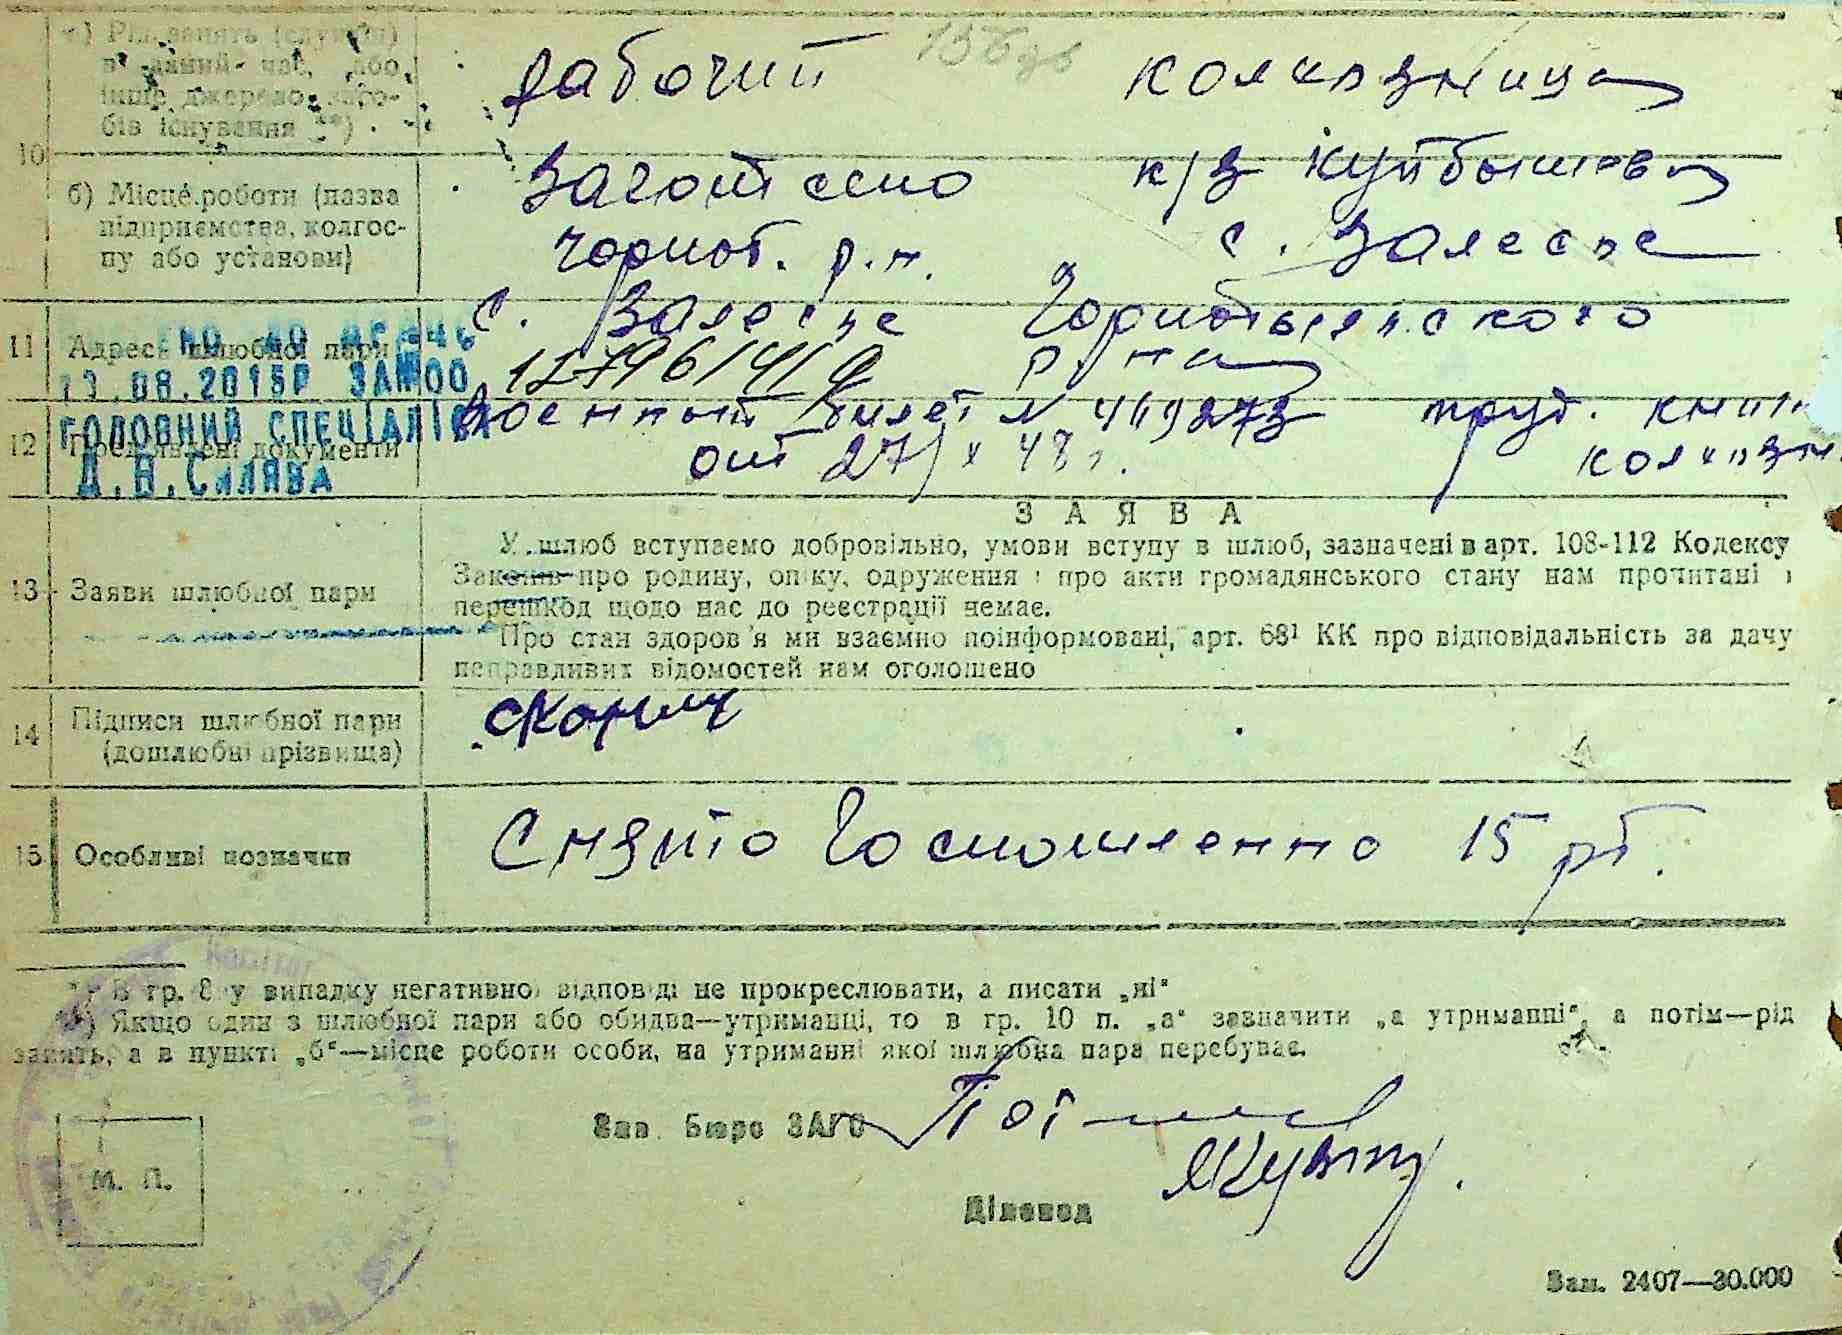 а) Рід занять (служби)
в даний час, або
інше джерело засо-
бів існування **)
рабочий
колхозница
10
б) Місце роботи (назва
підприємства, колгос-
пу або установи)
Заготсено
к/з Куйбышева
Чорноб. р.н.
с. Залесье
11
Адреси шлюбної пари
с. Залесье Чорнобыльского
р/на
12796/4/9
13.08.2015р ЗАМ 00
ГОЛОВНИЙ СПЕЦІАЛІСТ
Д.В.Силява
12
Пред'явлені документи
Военный билет № 469273 труд. книж
от 27/х 48 г. колхозн.
ЗАЯВА
13
Заяви шлюбної пари
У шлюб вступаємо добровільно, умови вступу в шлюб, зазначені в арт. 108-112 Кодексу
Законів про родину, опіку, одруження і про акти громадянського стану нам прочитані і
перешкод щодо нас до реєстрації немає.
Про стан здоров'я ми взаємно поінформовані, арт. 68¹ КК про відповідальність за дачу
неправливих відомостей нам оголошено
14
Підписи шлюбної пари
(дошлюбні прізвища)
15
Особливі позначки
Снято Госпошленно 15 рб.
*) В гр. 8 у випадку негативної відповіді не прокреслювати, а писати „ні“
**) Якщо один з шлюбної пари або обидва—утриманці, то в гр. 10 п. „а“ зазначити „а утриманні“, а потім—рід
занять, а в пункті „б“—місце роботи особи, на утриманні якої шлюбна пара перебуває.
Зав. Бюро ЗАГС
М. П.
Діловод
Зам. 2407—30.000